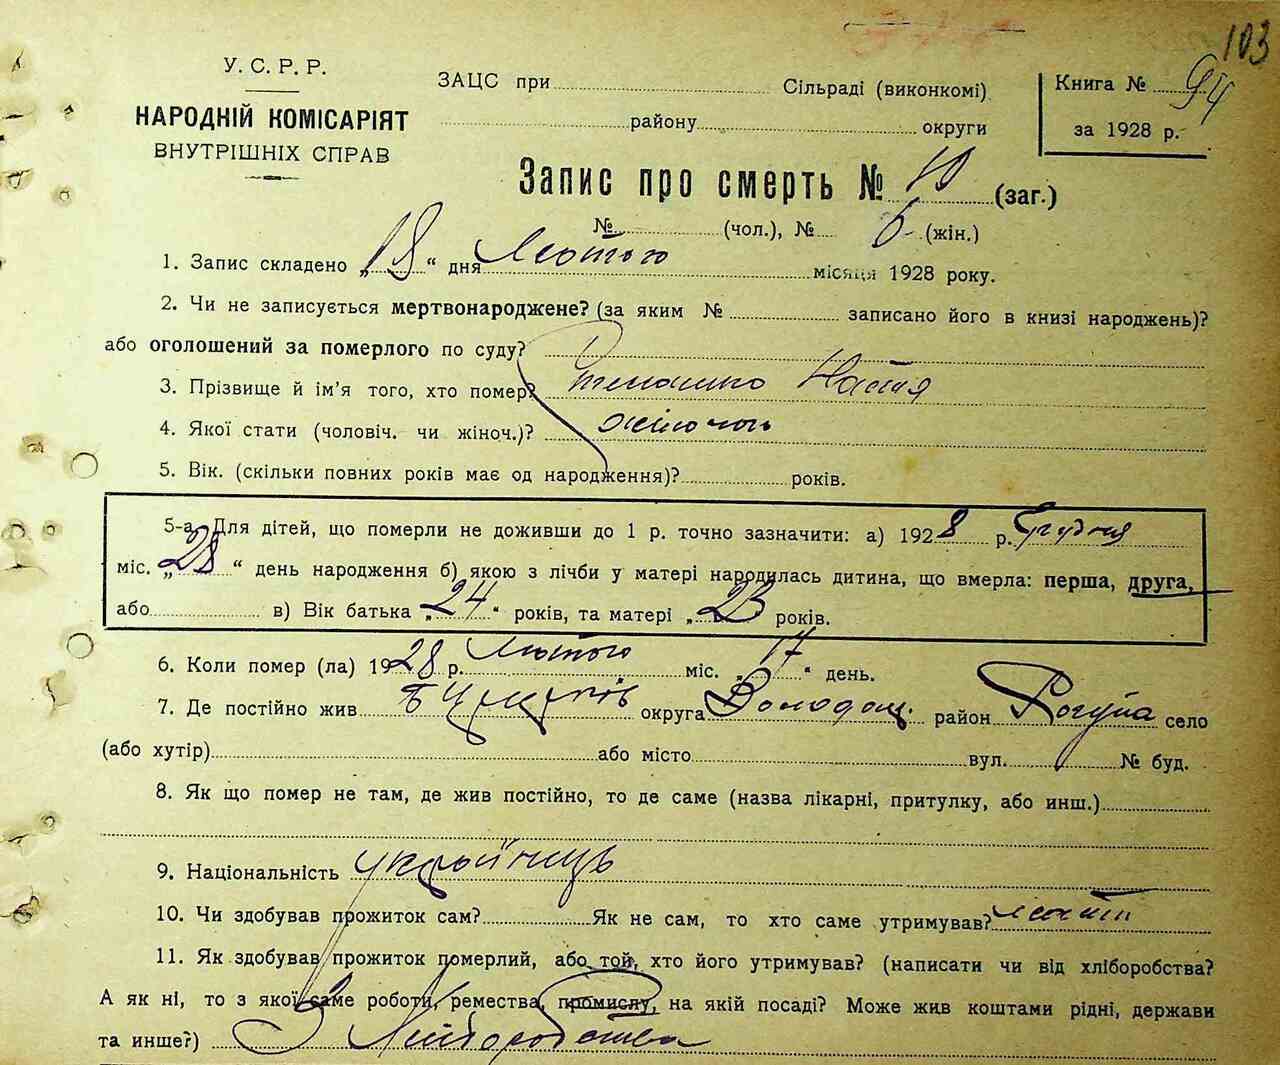 103
У. С. Р. Р.
НАРОДНІЙ КОМІСАРІЯТ
ВНУТРІШНІХ СПРАВ
ЗАЦС при Сільраді (виконкомі)
району округи
Книга № 94
за 1928 р.
Запис про смерть № 10 (заг.)
№ (чол.), № 6 (жін.)
1. Запис складено „18“ дня Лютого місяця 1928 року.
2. Чи не записується мертвонароджене? (за яким № записано його в книзі народжень)?
або оголошений за померлого по суду?
3. Прізвище й ім'я того, хто помер? Настя
4. Якої стати (чоловіч. чи жіноч.)? жіночої
5. Вік. (скільки повних років має од народження)? років.
5-а. Для дітей, що померли не доживши до 1 р. точно зазначити: а) 1928 р. Грудня
міс. „28“ день народження б) якою з лічби у матері народилась дитина, що вмерла: перша, друга,
або в) Вік батька „24“ років, та матері „23 років.
6. Коли помер (ла) 1928 р. Лютого міс. „17“ день.
7. Де постійно жив округа Володар. район Рогузна село
(або хутір) або місто вул. № буд.
8. Як що помер не там, де жив постійно, то де саме (назва лікарні, притулку, або инш.)
9. Національність українець
10. Чи здобував прожиток сам? Як не сам, то хто саме утримував?
11. Як здобував прожиток померлий, або той, хто його утримував? (написати чи від хліборобства?
А як ні, то з якої саме роботи, ремества, промислу, на якій посаді? Може жив коштами рідні, держави
та инше?) З Хліборобства